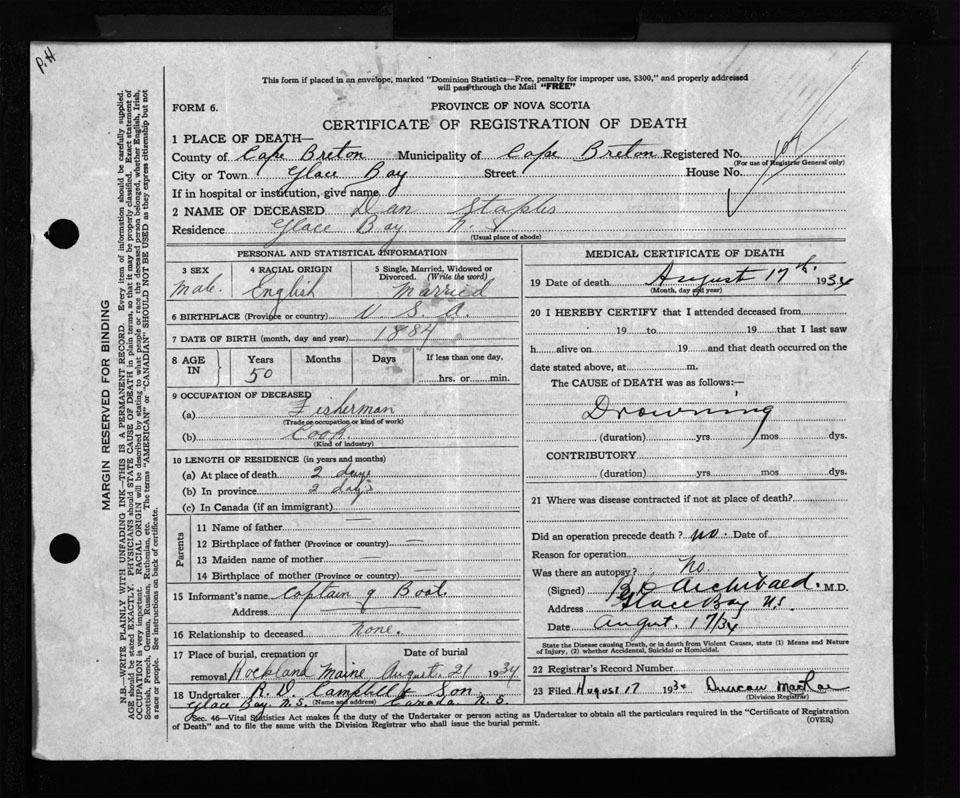 P.H
This form if placed in an envelope, marked "Dominion Statistics—Free, penalty for improper use, $300," and properly addressed
will pass through the Mail "FREE"
FORM 6.
PROVINCE OF NOVA SCOTIA
CERTIFICATE OF REGISTRATION OF DEATH
1 PLACE OF DEATH—
County of Cape Breton Municipality of Cape Breton Registered No.
(For use of Registrar General only)
City or Town Glace Bay Street House No.
If in hospital or institution, give name
2 NAME OF DECEASED Dan Staples
Residence Glace Bay N.S
(Usual place of abode)
PERSONAL AND STATISTICAL INFORMATION
3 SEX 4 RACIAL ORIGIN 5 Single, Married, Widowed or Divorced. (Write the word)
Male. English Married
6 BIRTHPLACE (Province or country) U. S. A.
7 DATE OF BIRTH (month, day and year) 1884
8 AGE IN Years Months Days If less than one day,
50 hrs. or min.
9 OCCUPATION OF DECEASED
(a) Fisherman
(Trade occupation or kind of work)
(b) Cook.
(Kind of industry)
10 LENGTH OF RESIDENCE (in years and months)
(a) At place of death 2 days
(b) In province 2 days
(c) In Canada (if an immigrant)
Parents
11 Name of father
12 Birthplace of father (Province or country) —
13 Maiden name of mother —
14 Birthplace of mother (Province or country) —
15 Informant's name Captain of Boat.
Address
16 Relationship to deceased none.
17 Place of burial, cremation or Date of burial
removal Rockland Maine August 21 1934
18 Undertaker R. D. Campbell & Son
(Name and address)
Glace Bay. N.S. Canada. N.S.
MEDICAL CERTIFICATE OF DEATH
19 Date of death August 17th. 1934
(Month, day and year)
20 I HEREBY CERTIFY that I attended deceased from
19 to 19 that I last saw
h alive on 19 and that death occurred on the
date stated above, at m.
The CAUSE of DEATH was as follows:—
Drowning
(duration) yrs. mos. dys.
CONTRIBUTORY
(duration) yrs. mos. dys.
21 Where was disease contracted if not at place of death?
Did an operation precede death? no. Date of
Reason for operation
Was there an autopsy? No
(Signed) Archibald. M.D.
Address Glace Bay N.S.
Date August. 17/34
State the Disease causing Death, or in death from Violent Causes, state (1) Means and Nature
of Injury, (2) whether Accidental, Suicidal or Homicidal.
22 Registrar's Record Number
23 Filed August 17 1934 Duncan
(Division Registrar)
Sec. 46—Vital Statistics Act makes it the duty of the Undertaker or person acting as Undertaker to obtain all the particulars required in the "Certificate of Registration
of Death" and to file the same with the Division Registrar who shall issue the burial permit. (OVER)
MARGIN RESERVED FOR BINDING
N.B.—WRITE PLAINLY WITH UNFADING INK—THIS IS A PERMANENT RECORD. Every item of information should be carefully supplied.
AGE should be stated EXACTLY. PHYSICIANS should STATE CAUSE OF DEATH in plain terms, so that it may be properly classified. Exact statement of
OCCUPATION is very important. RACIAL ORIGIN will be described by stating to what people or race the deceased person belonged, whether English, Irish,
Scottish, French, German, Russian, Ruthenian, etc. The terms "AMERICAN" or "CANADIAN" SHOULD NOT BE USED as they express citizenship but not
a race or people. See instructions on back of certificate.